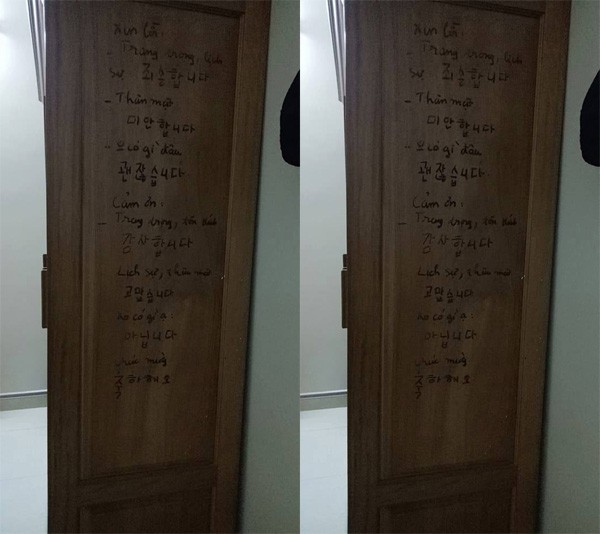 Xin lỗi:
- Trang trọng, lịch
sự: 죄송합니다
- Thân mật
미안합니다
- Ko có gì đâu
괜찮습니다
Cảm ơn:
- Trang trọng, tôn kính
감사합니다
Lịch sự, thân mật
고맙습니다
ko có gì ạ:
아닙니다
chúc mừng
축하해요
Xin lỗi:
- Trang trọng, lịch
sự: 죄송합니다
- Thân mật
미안합니다
- Ko có gì đâu
괜찮습니다
Cảm ơn:
- Trang trọng, tôn kính
감사합니다
Lịch sự, thân mật
고맙습니다
ko có gì ạ:
아닙니다
chúc mừng
축하해요